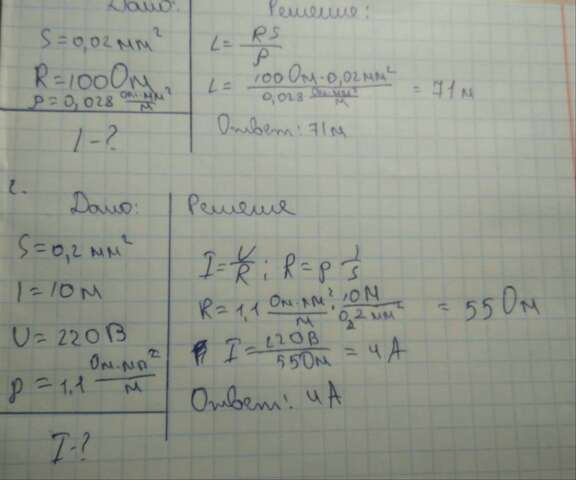 Дано: Решение:
S = 0,02 мм²
R = 100 Ом
ρ = 0,028 Ом·мм²/м
l - ?
L = RS/ρ
L = 100 Ом·0,02 мм² / 0,028 Ом·мм²/м = 71 м
Ответ: 71 м
2.
Дано: Решение
S = 0,2 мм²
l = 10 м
U = 220 В
ρ = 1,1 Ом·мм²/м
I - ?
I = U/R; R = ρ l/s
R = 1,1 Ом·мм²/м · 10 м/0,2 мм² = 55 Ом
I = 220 В/55 Ом = 4 А
Ответ: 4 А